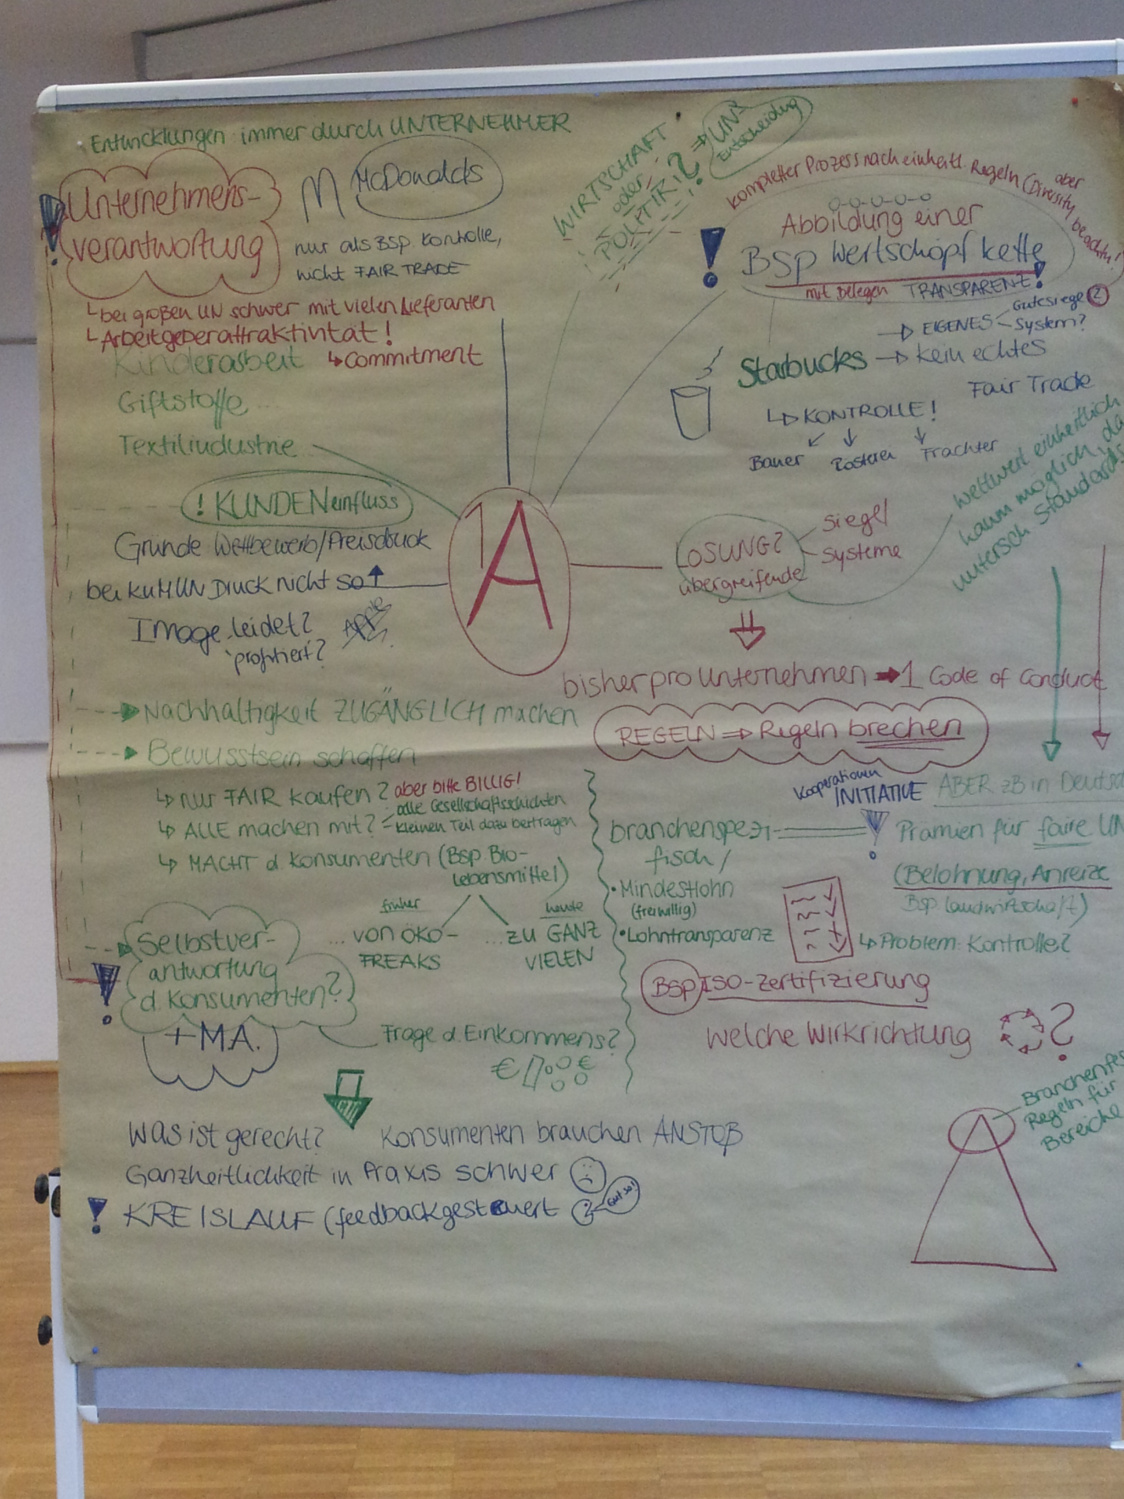 Entwicklungen immer durch UNTERNEHMER
WIRTSCHAFT
oder
POLITIK!?
⇒ UN?
Entscheidung
! Unternehmens-
verantwortung
M McDonalds
nur als BSP Kontrolle,
nicht FAIR TRADE
↳ bei großen UN schwer mit vielen Lieferanten
↳ Arbeitgeberattraktivität!
Kinderarbeit ↳ Commitment
Giftstoffe...
Textilindustrie
! KUNDENeinfluss
Gründe Wettbewerb/Preisdruck
bei KuMUN Druck nicht so ↑
Image leidet? Apple
profitiert?
kompletter Prozess nach einheitl. Regeln (Diversity
aber
beachten!
! Abbildung einer
BSP Wertschöpf kette
mit Belegen TRANSPARENT!
Starbucks
→ EIGENES
Gütesiegel 2
System?
→ kein echtes
Fair Trade
↳ KONTROLLE!
Bauer Rösterei Frachter
1A
LÖSUNG?
übergreifende
Siegel
Systeme
weltweit einheitlich
kaum möglich, da
untersch Standards
bisher pro Unternehmen → 1 Code of Conduct
REGELN ⇒ Regeln brechen
→ Nachhaltigkeit ZUGÄNGLICH machen
→ Bewusstsein schaffen
↳ nur FAIR kaufen? aber bitte BILLIG!
↳ ALLE machen mit?
alle Gesellschaftsschichten
kleinen Teil dazu beitragen
↳ MACHT d. Konsumenten (Bsp. Bio-
Lebensmittel)
früher
... von ÖKO-
FREAKS
heute
... ZU GANZ
VIELEN
→ Selbstver-
antwortung
d. Konsumenten?
! + MA.
Frage d. Einkommens?
€ €
Kooperationen
INITIATIVE
branchenspezi-
fisch /
• Mindestlohn
(freiwillig)
• Lohntransparenz
ABER zB in Deutsc
! Prämien für faire UN
(Belohnung, Anreize
Bsp Landwirtschaft)
↳ Problem: Kontrolle?
Bsp ISO-Zertifizierung
welche Wirkrichtung ?
Regeln für
Bereiche
Was ist gerecht? Konsumenten brauchen ANSTOß
Ganzheitlichkeit in Praxis schwer
! KREISLAUF (feedbackgesteuert